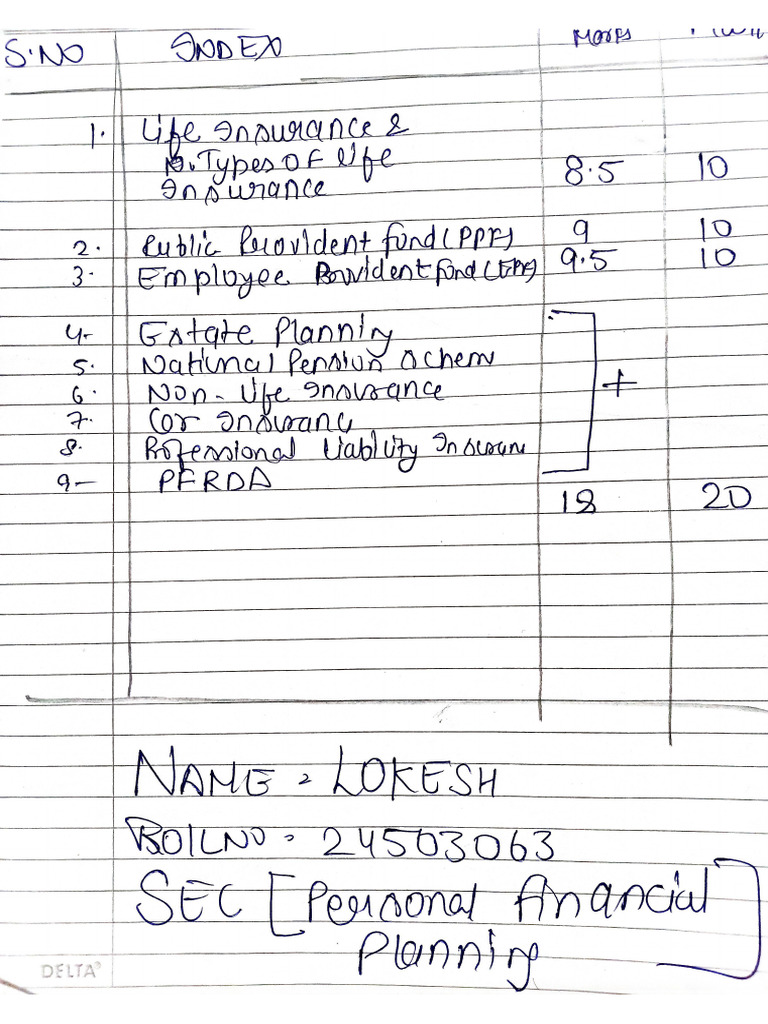 S.NO INDEX Marks
1. Life Insurance &
Types of Life
Insurance 8.5 10
2. Public Provident fund (PPF) 9 10
3. Employee Provident fund (EPF) 9.5 10
4- Estate Planning
5. National Pension Schem
6. Non-Life Insurance +
7. Car Insuranc
8. Professional Liability Insuran
9- PFRDA
18 20
NAME = LOKESH
ROLLNO = 24503063
SEC [Personal financial
Planning]
DELTA